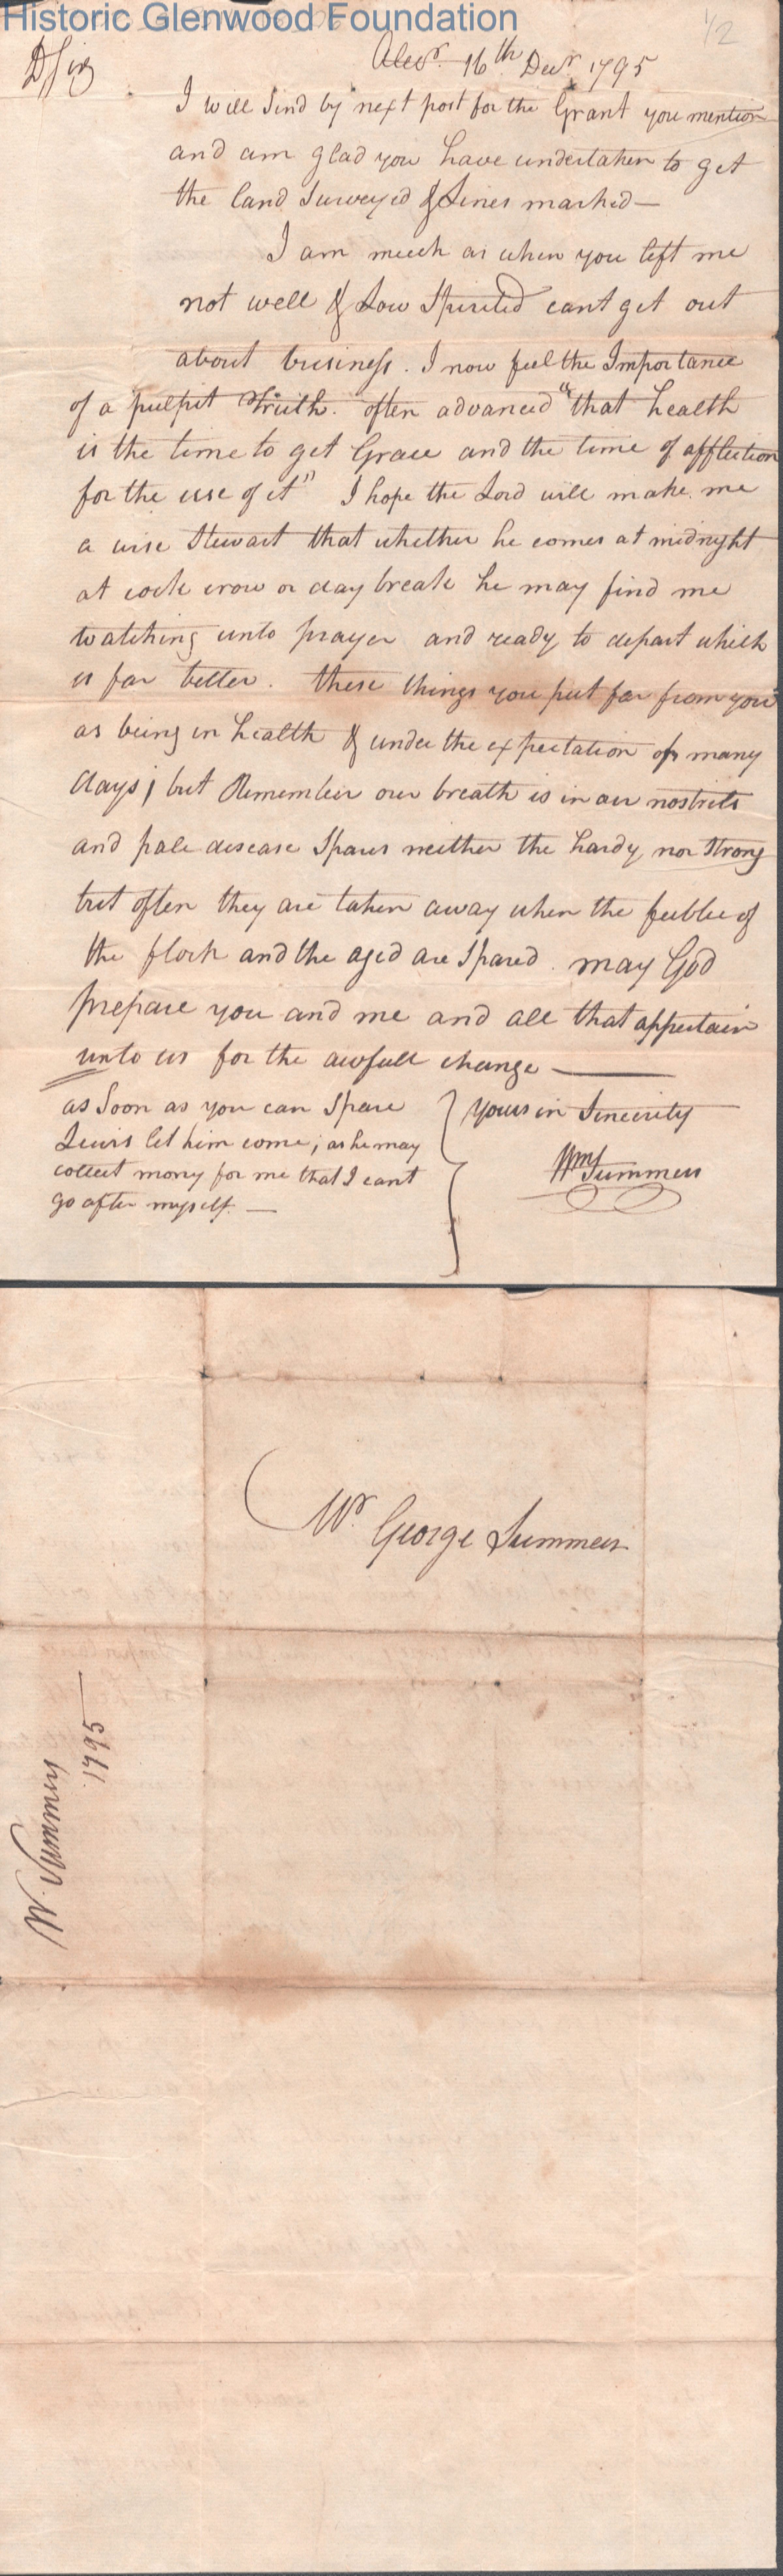 Historic Glenwood Foundation
1/2
Alexr. 16th Decr. 1795
D Sir
I will Send by next post for the Grant you mention
and am glad you have undertaken to get
the land Surveyed & Lines marked—
I am much as when you left me
not well & Low Spirited cant get out
about business. I now feel the Importance
of a pulpit Truth. often advanced "that health
is the time to get Grace and the time of affliction
for the use of it" I hope the Lord will make me
a wise Stewart that whether he comes at midnight
at cock crow or day break he may find me
watching unto prayer and ready to depart which
is far better. these things you put far from you
as being in health & under the expectation of many
days; but Remember our breath is in our nostrils
and pale disease Spares neither the hardy nor Strong
but often they are taken away when the feeble of
the flock and the aged are Spared. may God
prepare you and me and all that appertain
unto us for the awfull change —
as Soon as you can Spare
Lewis let him come; as he may
collect mony for me that I cant
go after myself. —
Yours in Sincerity
Wm Summers
Mr. George Summers
W. Summers
1795